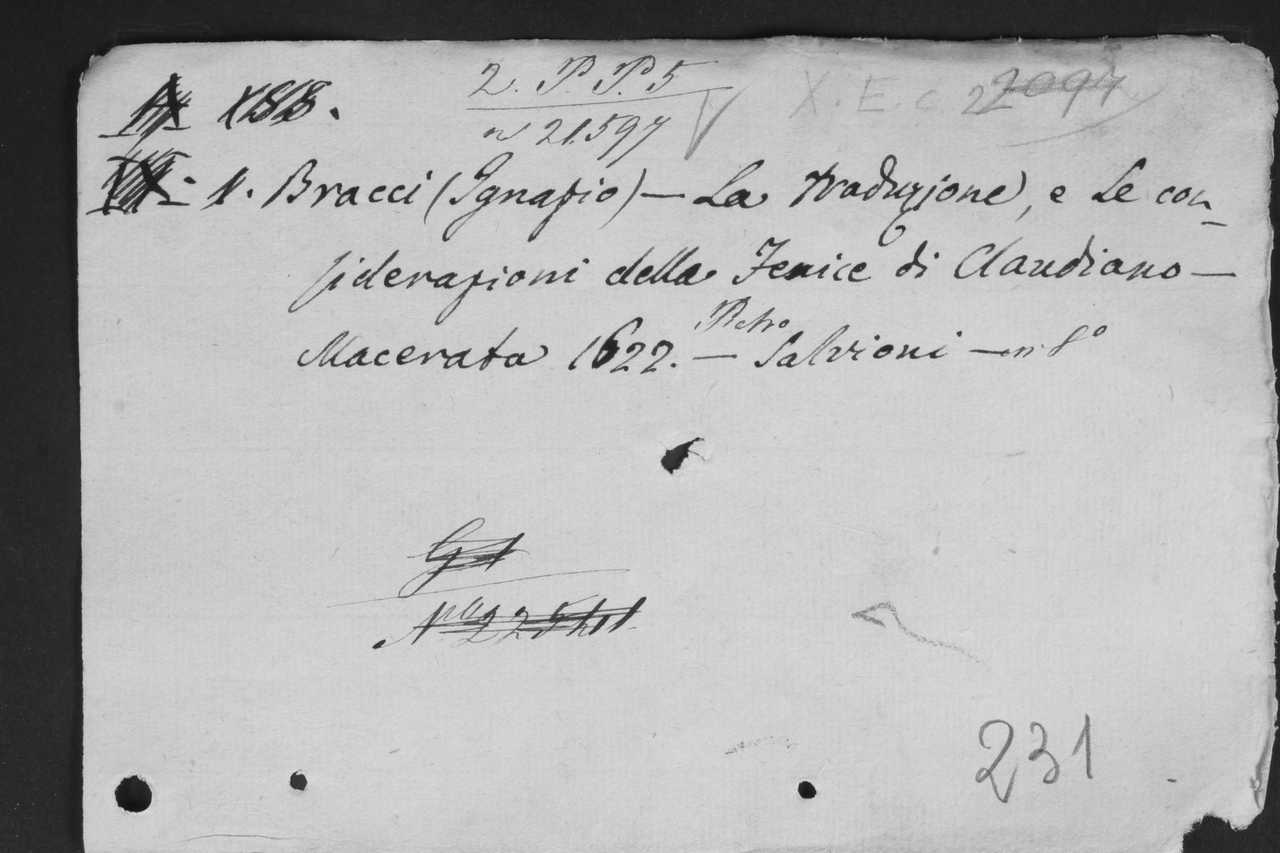 2. P. P. 5
n 21.597
X. E. c. 22097
1. Bracci (Ignazio) — La traduzione, e le con-
siderazioni della Fenice di Claudiano —
Macerata 1622. — Pietro Salvioni — in 8°
231